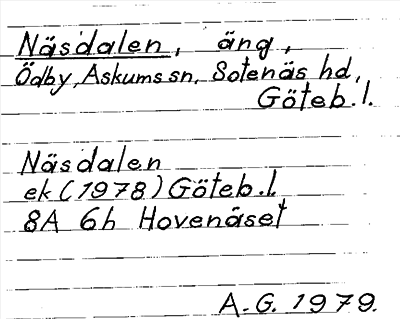 Näsdalen, äng,
Ödby, Askums sn, Sotenäs hd,
Göteb.l.
Näsdalen
ek (1978) Göteb.l.
8A 6h Hovenäset
A.G. 1979.